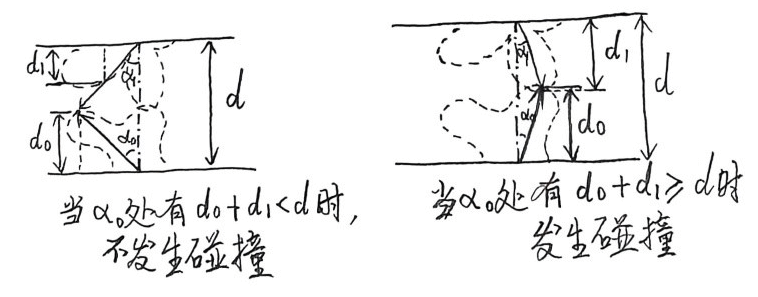 d₁
α₁
d₀
α₀
d
当α₀处有d₀+d₁<d时,
不发生碰撞
α₁
d₁
α₀
d₀
d
当α₀处有d₀+d₁≥d时
发生碰撞